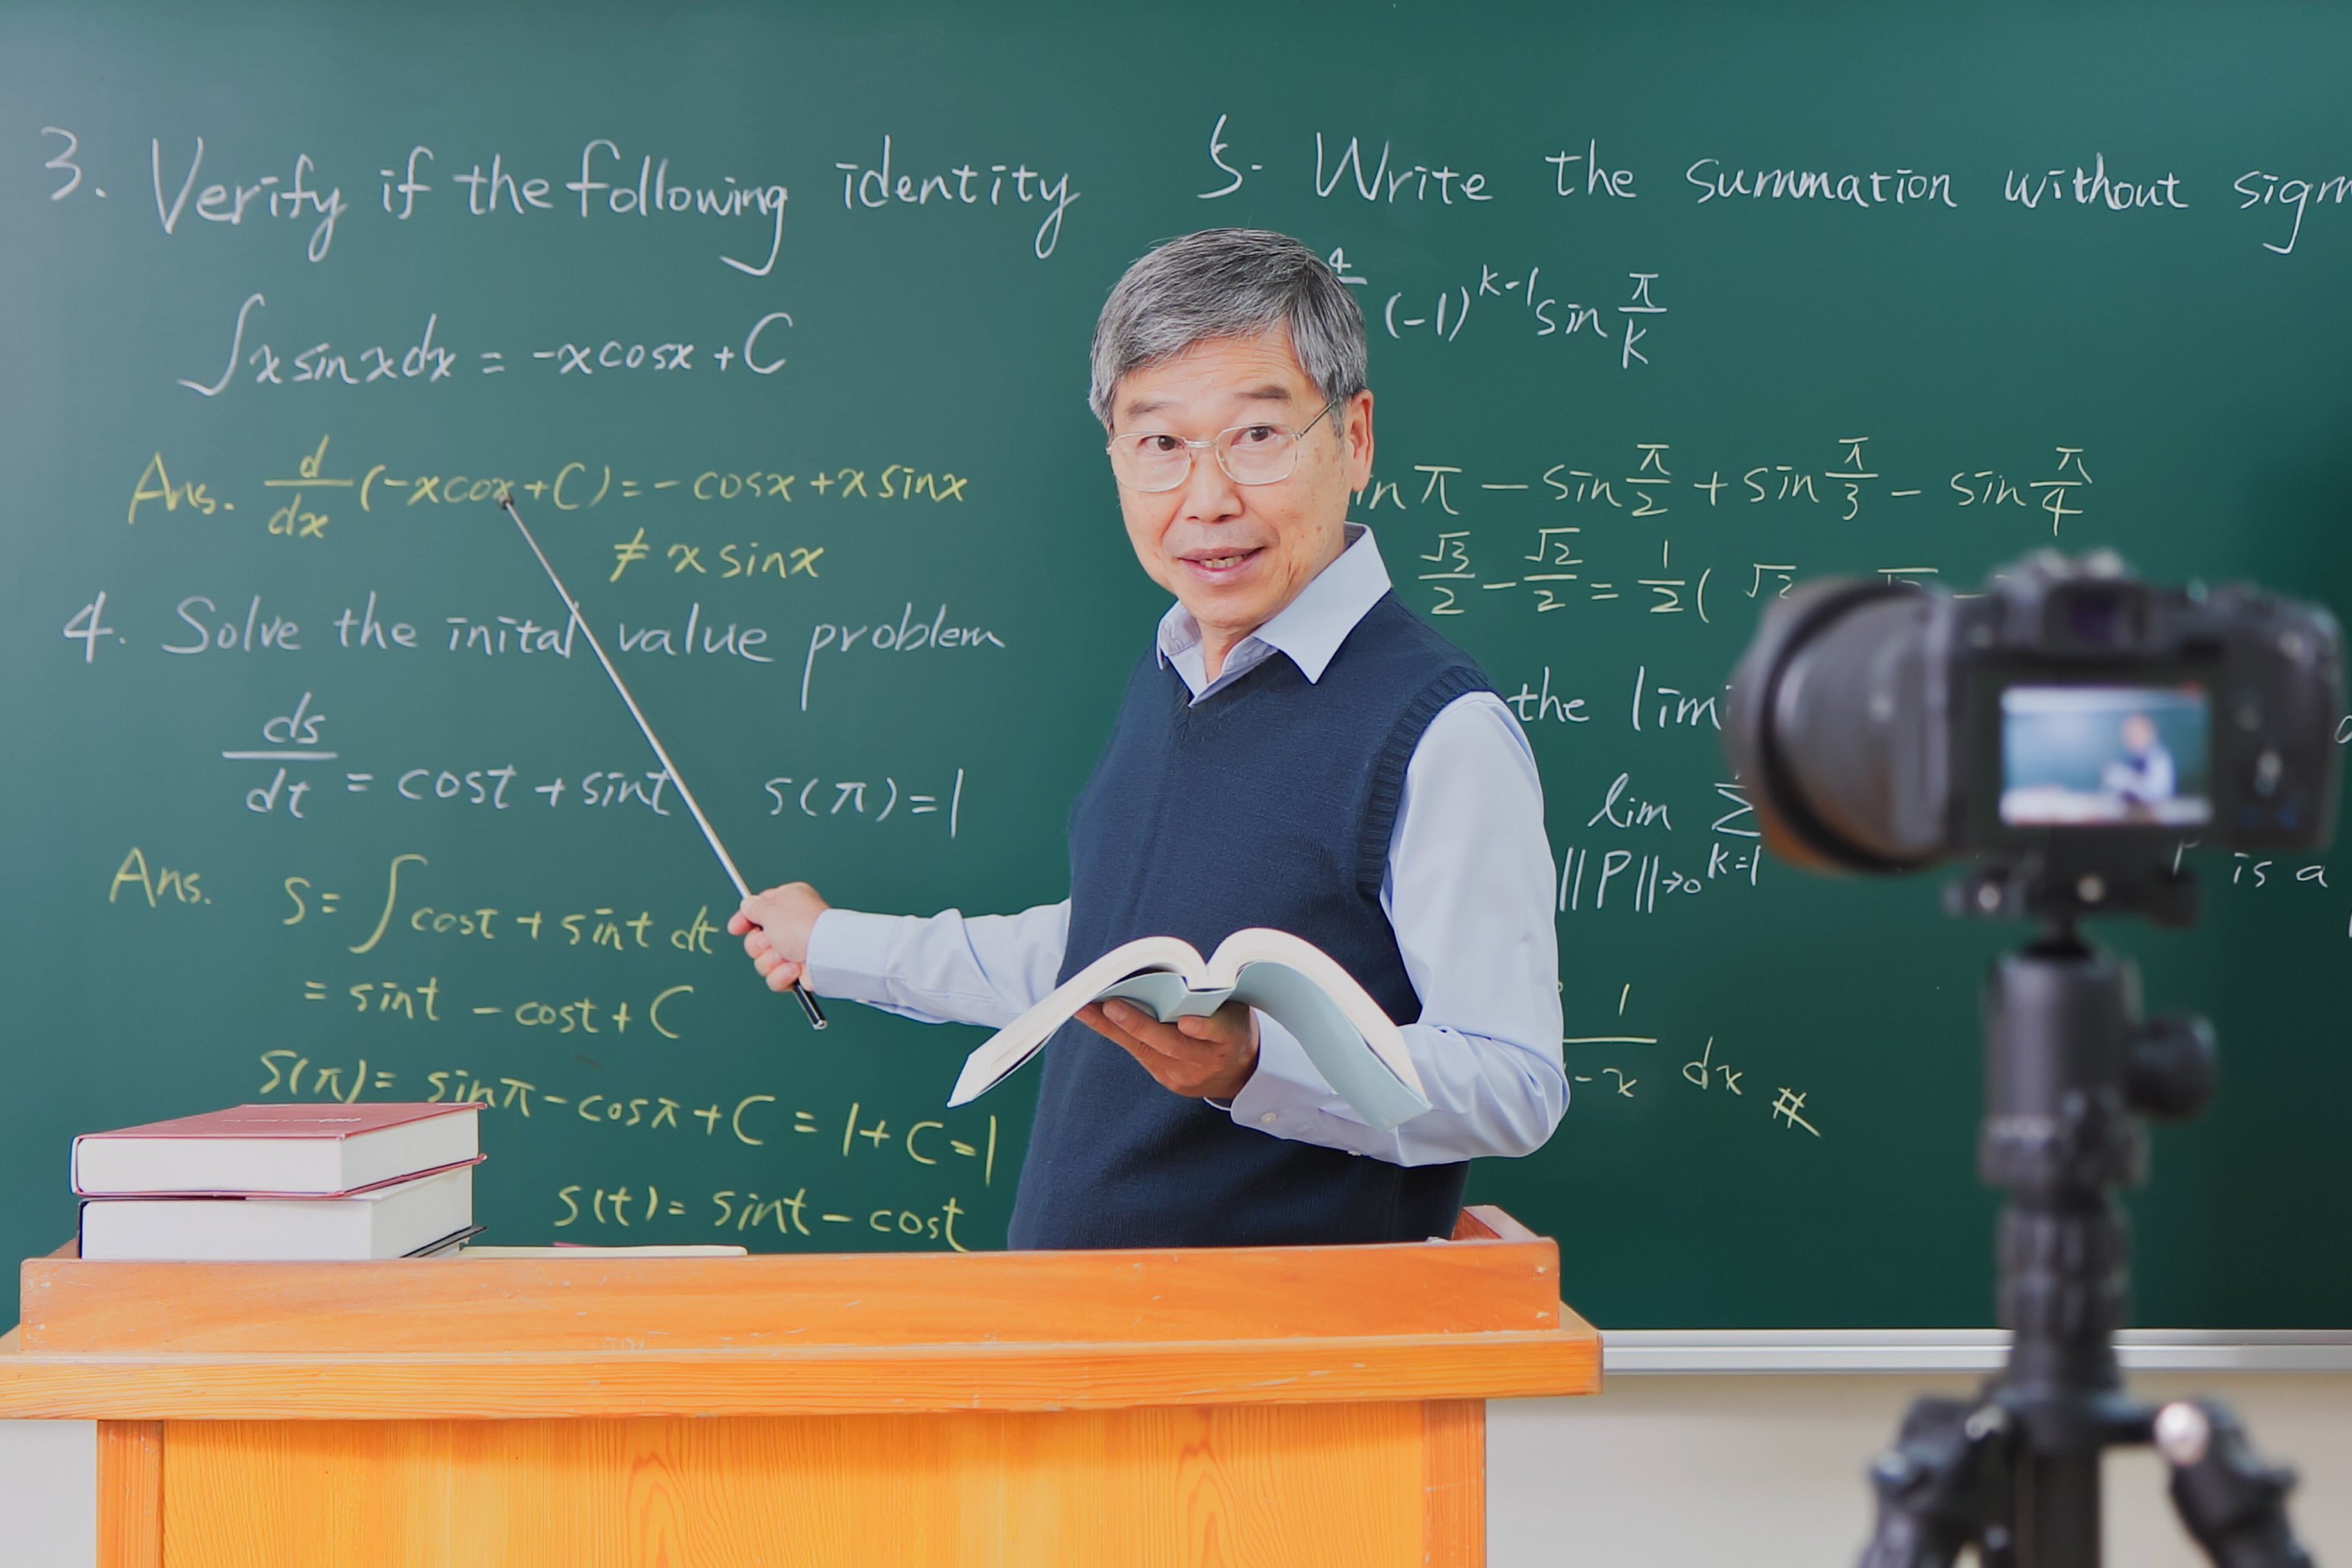 3. Verify if the following identity
∫x sin x dx = -x cos x + C
Ans. d/dx (-x cox + C) = - cos x + x sin x
≠ x sin x
4. Solve the inital value problem
ds/dt = cos t + sin t   s(π) = 1
Ans. s = ∫ cos t + sin t dt
= sin t - cos t + C
s(π) = sin π - cos π + C = 1 + C = 1
s(t) = sin t - cos t
5. Write the summation without
4 (-1)^(k-1) sin π/k
π - sin π/2 + sin π/3 - sin π/4
√3/2 - √2/2 = 1/2 (
the
lim Σ
||P||→0 k=1
is a
1
-x dx #